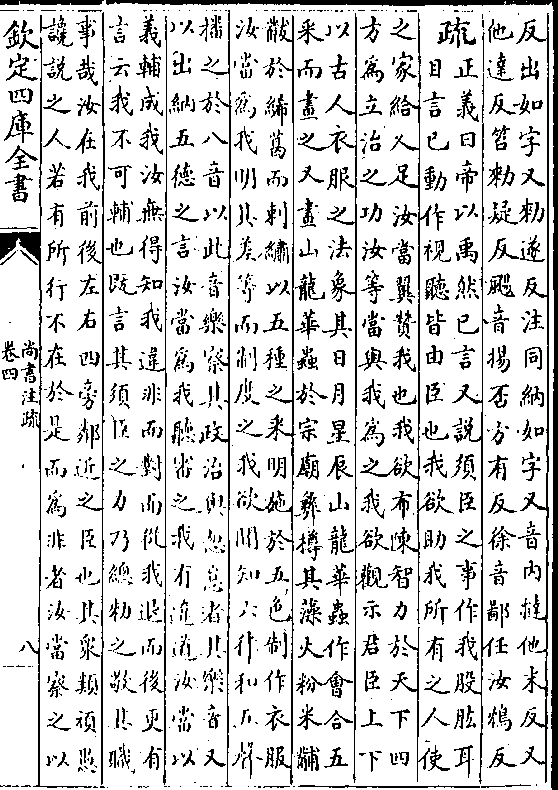 反出如字又勑遂反注同納如字又音内撻他末反又
他達反笞勑疑反颺音揚否方有反徐音鄙任汝鴆反
疏
正義曰帝以禹然已言又說須臣之事作我股肱耳
目言已動作視聽皆由臣也我欲助我所有之人使
之家給人足汝當翼贊我也我欲布陳智力於天下四
方為立治之功汝等當與我為之我欲觀示君臣上下
以古人衣服之法象其日月星辰山龍華蟲作會合五
采而畫之又畫山龍華蟲於宗廟彝樽其藻火粉米黼
黻於絺葛而刺繡以五種之采明施於五色制作衣服
汝當為我明其差等而制度之我欲聞知六律和五聲
播之於八音以此音樂察其政治與忽怠者其樂音又
以出納五德之言汝當為我聽審之我有違道汝當以
義輔成我汝無得知我違非而對面從我退而後更有
言云我不可輔也既言其須臣之力乃總勑之敬其職
事哉汝在我前後左右四旁鄰近之臣也其衆類頑愚
讒說之人若有所行不在於是而為非者汝當察之以
欽定四庫全書
尚書注疏
卷四
八